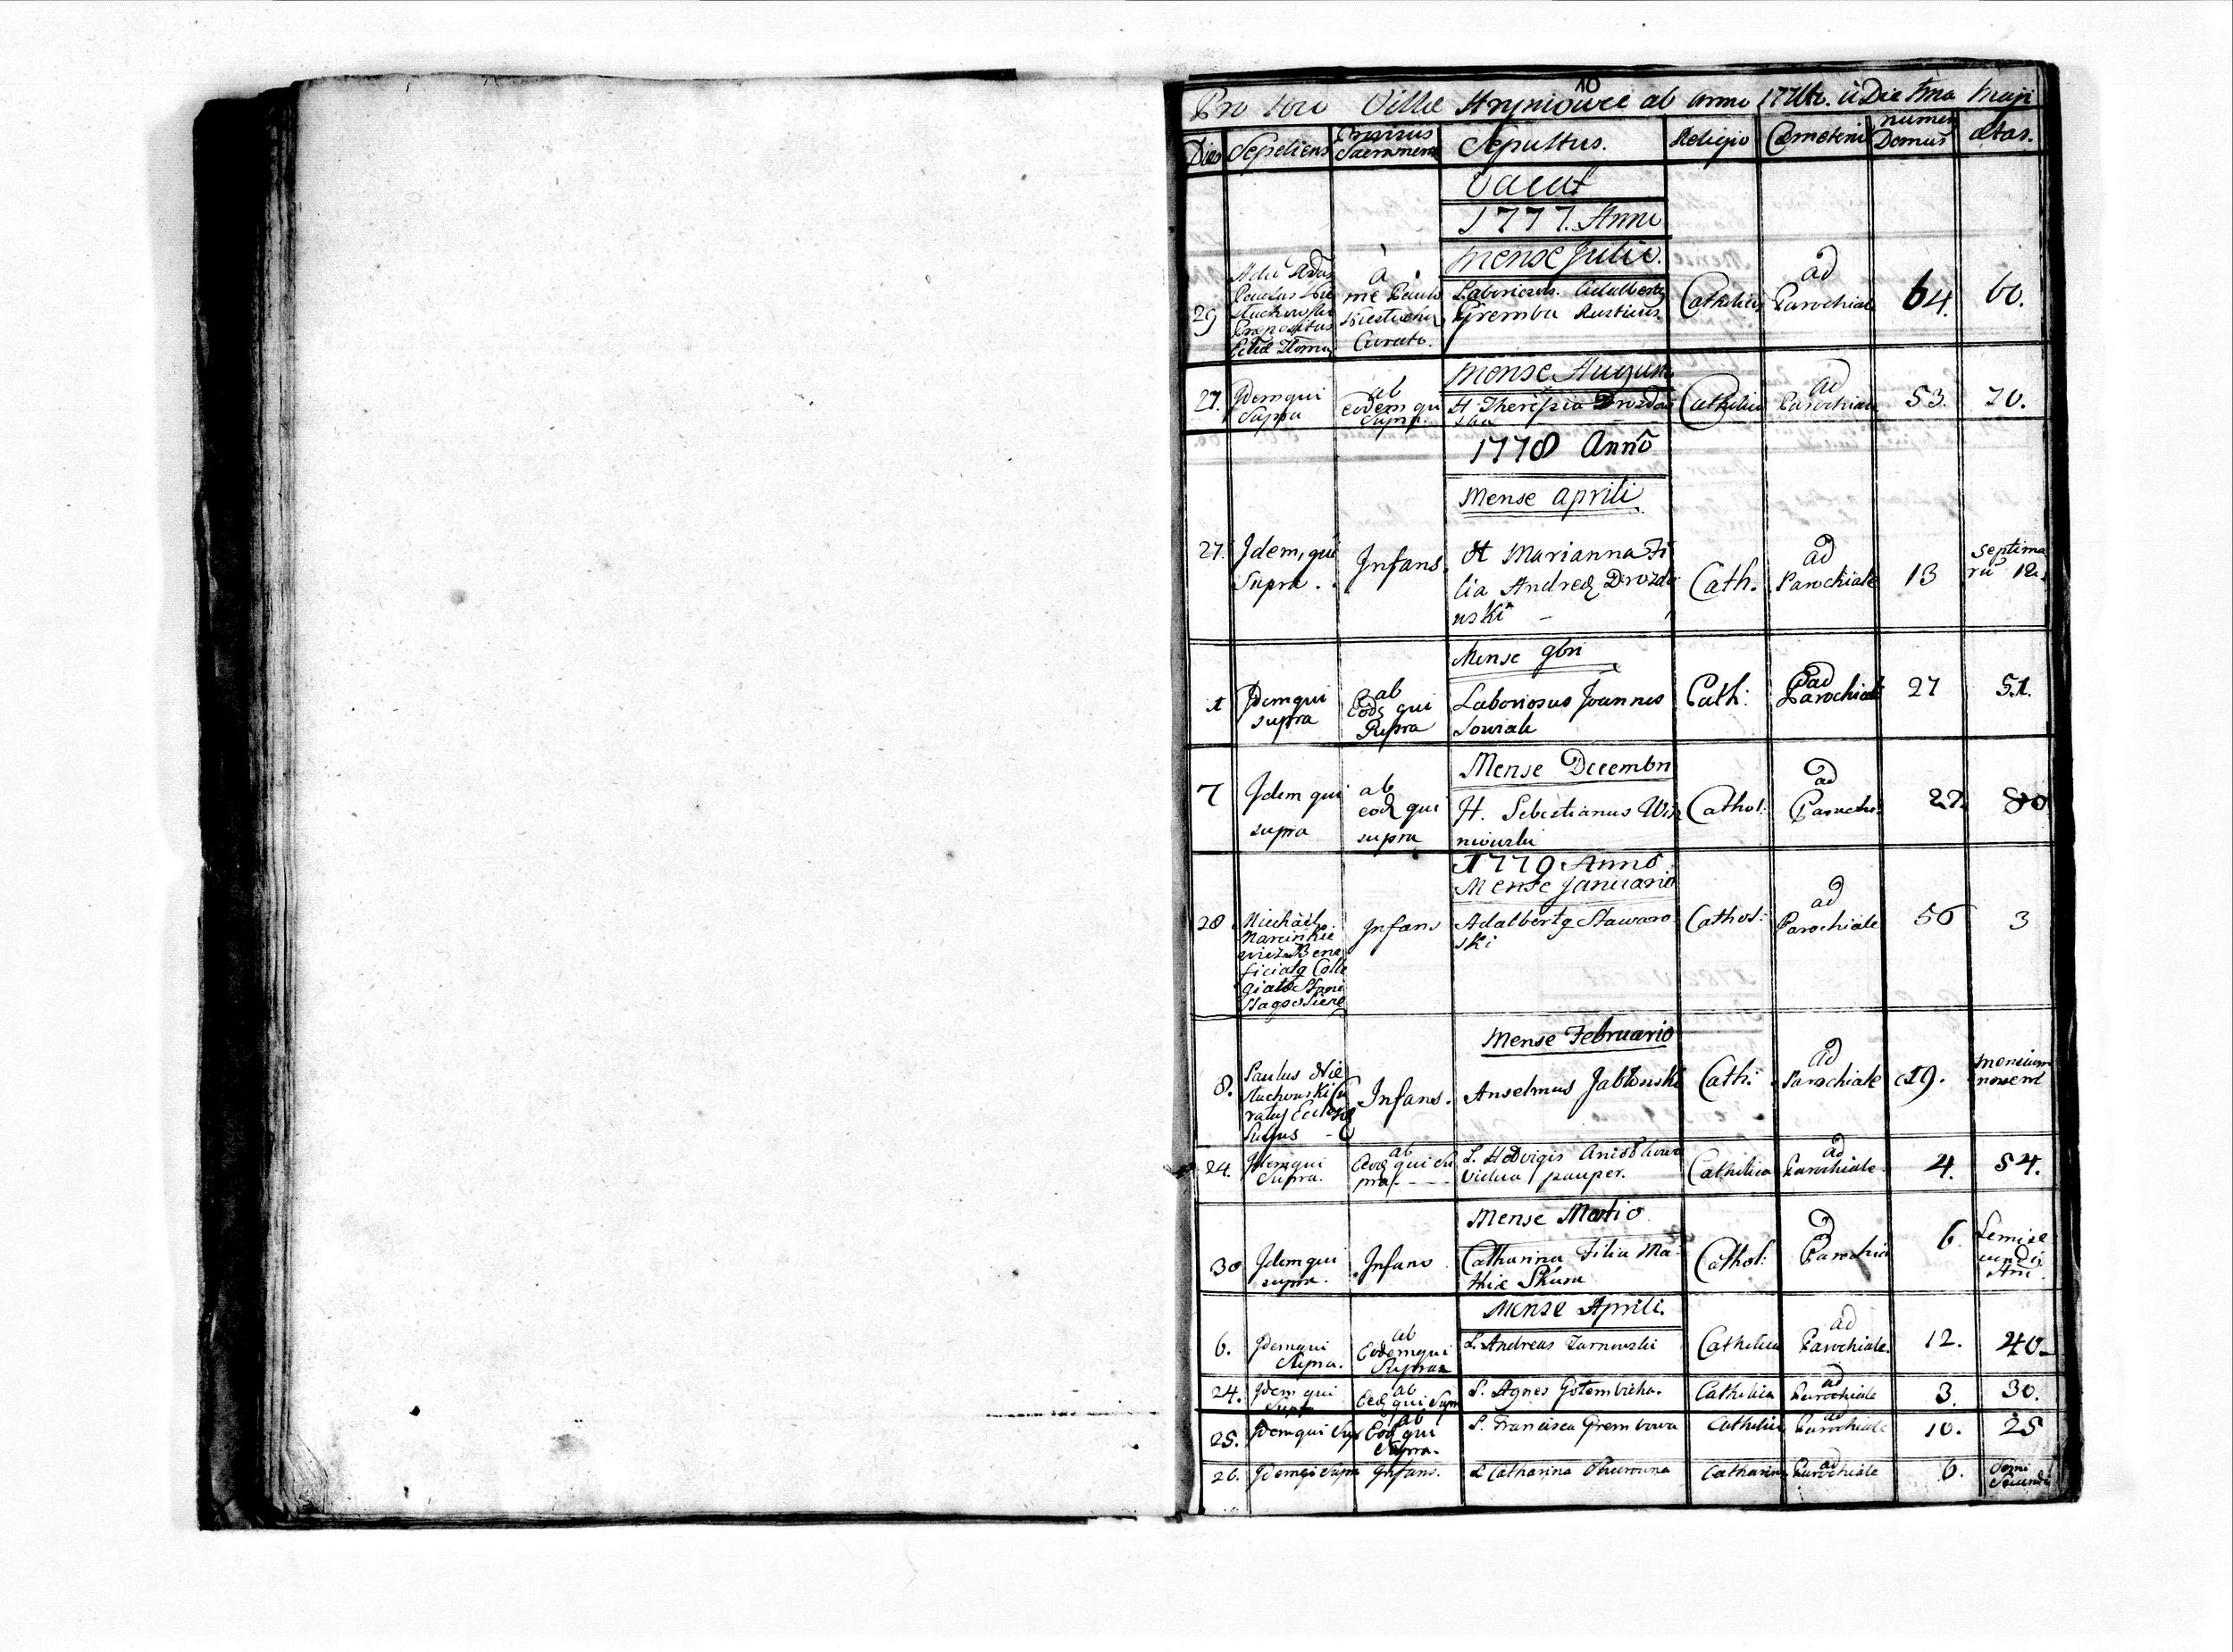 10
Pro loco Villae Hryniowce ab Anno 17 à Die 1ma Maji
Dies Sepeliens Provisus Sacrament Sepultus. Religio Cæmeteriũ numer Domus ætas.
Vacat
1777. Anni
Mense Julio.
29 Paulus Præpositus
à me Paulo Curato.
Laboriosus Adalbertus
Gremba Rusticus
Catholicus ad Parochiale 64. 60.
Mense Augusti
27. Idem qui supra
ab eodem qui supra.
H. Theresia Drozdo
ska
Catholica ad Parochiale 53. 70.
1778 Annõ
Mense aprili
27. Idem, qui
supra.
Infans.
H Marianna Fi
lia Andreę Drozdo
wski
Cath. ad Parochiale 13 Septima
rũ 12.
Mense 9bri
1 Idem qui
supra
ab
Eodę qui
supra
Laboriosus Joannes
Cath: ad Parochiale 27 51.
Mense Decembri
7 Idem qui
supra
ab
eodę qui
supra
H. Sebestianus Wis
niowski
Cathol: ad Paroch: 27. 80
1779 Anno
Mense Januario
28 Michael
Marcinkie
wicz Bene
ficiatq Colle
giatæ
Infans
Adalbertq Stawaro
ski
Cathol: ad Parochiale 56 3
Mense Februario
8. Paulus Nie
stuchowski Cu
ratus Ecclesiæ
Infans.
Anselmus Jabłonski
Cath: ad Parochiale 19. Mensium
novem
24. Idem qui
supra.
ab
Eodę qui su
pra
L. Hedvigis
vidua pauper.
Catholica ad Parochiale 4. 54.
Mense Martio
30 Idem qui
supra.
Infans
Catharina Filia Ma
thiæ Skura
Cathol: ad Parochia 6. Semise
cundi
Ani
Mense Aprili.
6. Idem qui
supra.
ab
Eodem qui
supra
L. Andreas Tarnowski
Catholicus ad Parochiale. 12. 40
24. Idem qui
supra
ab
Eodę qui supra
L. Agnes Gołembicka.
Catholica ad Parochiale 3. 30.
25. Idem qui sup
ab
Eodę qui
supra.
L. Francisca Grembowa
Catholica ad Parochiale 10. 25
26. Idem qui supra Infans. L Catharina Skurowna
Catharina ad Parochiale 6. Semi
secundi